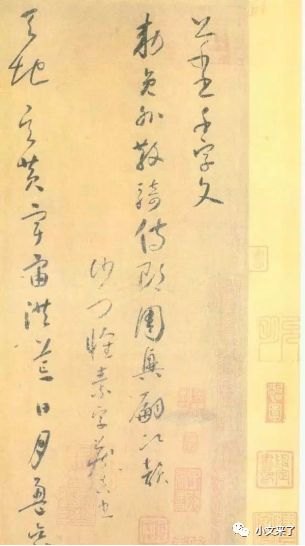 千字文
勅員外散騎侍郎周興嗣次韻
沙門懷素字藏真書
天地玄黃宇宙洪荒日月盈昃
小文来了